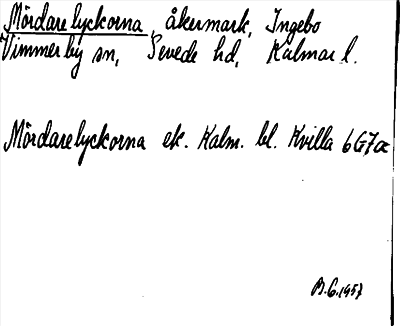 Mördarelyckorna, åkermark, Ingebo
Vimmerby sn, Sevede hd, Kalmar l.
Mördarelyckorna ek. Kalm. bl. Kvilla 6G7a
B.G. 1957